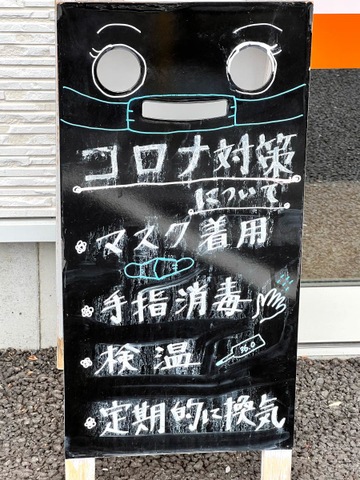 コロナ対策
について
マスク着用
手指消毒
36.0
検温
定期的に換気